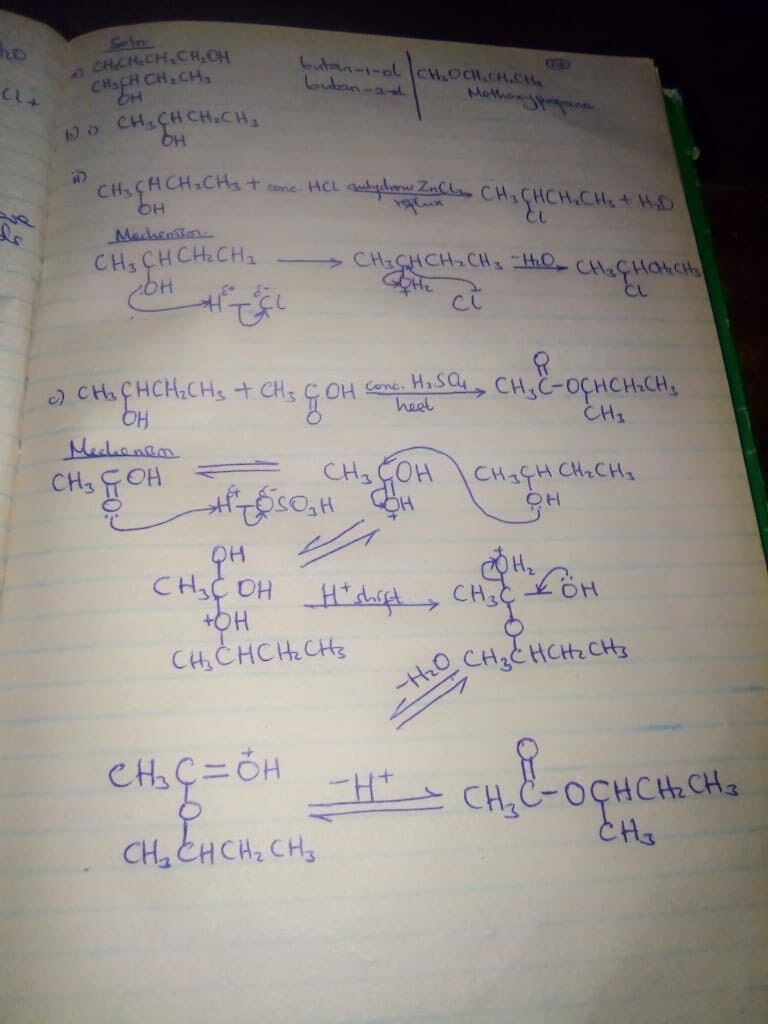 Soln
a) CH₃CH₂CH₂CH₂OH butan-1-ol CH₃OCH₂CH₂CH₃
CH₃CHCH₂CH₃ butan-2-ol Methoxypropane
OH
b) i) CH₃CHCH₂CH₃
OH
ii) CH₃CHCH₂CH₃ + conc. HCl anhydrous ZnCl₂ reflux CH₃CHCH₂CH₃ + H₂O
OH Cl
Mechanism
CH₃CHCH₂CH₃ → CH₃CHCH₂CH₃ -H₂O → CH₃CHCH₂CH₃
:OH H^δ+ - Cl^δ- +OH₂ Cl Cl
c) CH₃CHCH₂CH₃ + CH₃COH conc. H₂SO₄ heat → CH₃C-OCHCH₂CH₃
OH O O CH₃
Mechanism
CH₃COH ⇌ CH₃COH CH₃CHCH₂CH₃
O H^δ+ - O^δ-SO₃H OH + OH
OH +OH₂
CH₃C OH H⁺ shift → CH₃C - OH
+OH O
CH₃CHCH₂CH₃ -H₂O CH₃CHCH₂CH₃
CH₃C=OH⁺ -H⁺ ⇌ CH₃C-OCHCH₂CH₃
O O CH₃
CH₃CHCH₂CH₃